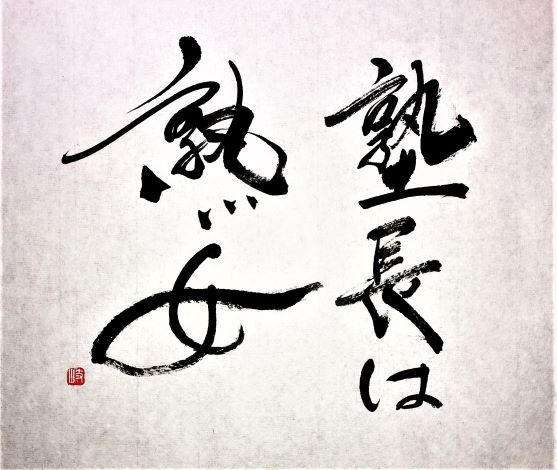 塾長は
熟女